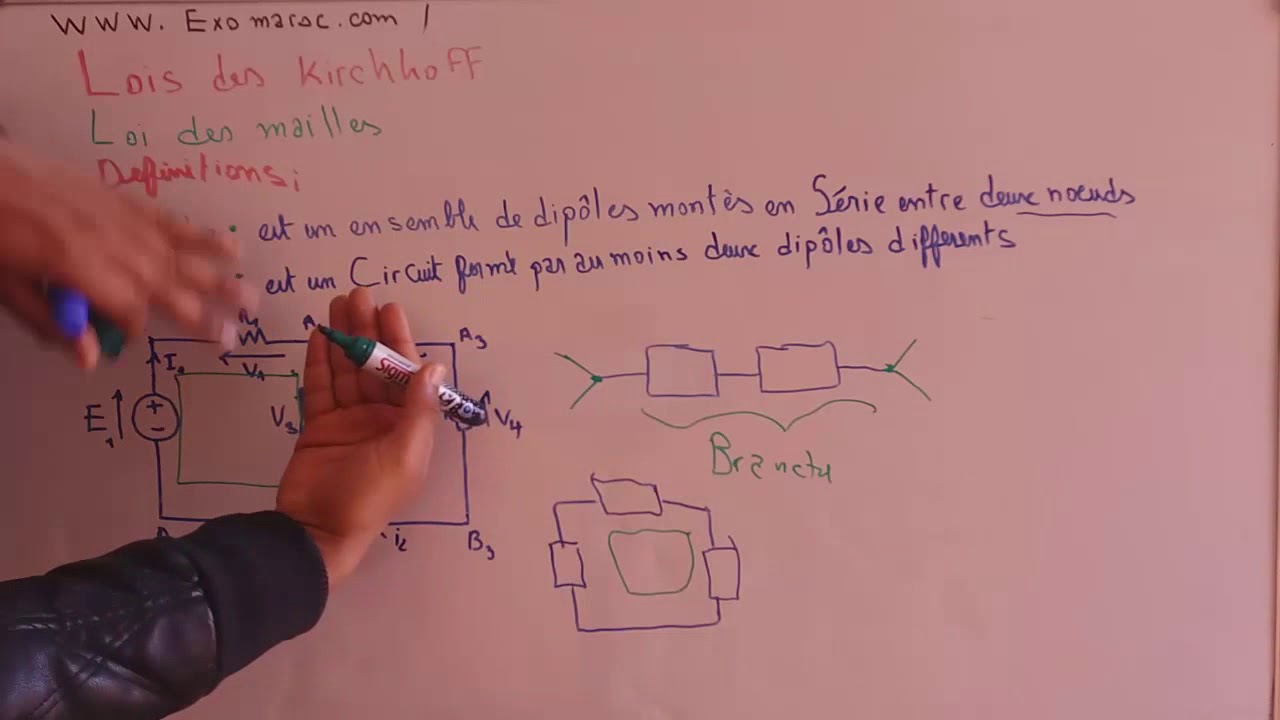 WWW. Exomaroc.com /
Lois des Kirchhoff
Loi des mailles
Definitions:
: est un ensemble de dipôles montés en Série entre deux noeuds
: est un Circuit formé par au moins deux dipôles differents
A
A3
I1
V1
E1
+
-
V3
V4
i2
B3
Branche